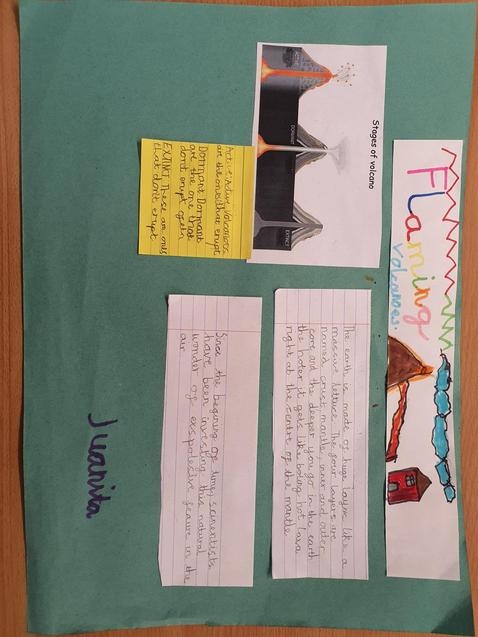 FLaming
volcanoes.
Stages of volcano
ACTIVE
DORMANT
EXTINCT
Active: Active volcanoes
are the ones that erupt
Dormant Dormant
are the one that
don't erupt often
EXTINCT These are ones
that don't erupt
The earth is made of huge layers like a
massive lettuce. The four layers are
named crust, mantle, inner and outer
core and the deeper you go in the earth
the hoter it gets like boling hot lava
right at the centre of the mantle.
Since the begining of time, scientists
have been investing this natural
wonder of exspolesive in the
air
Juanita